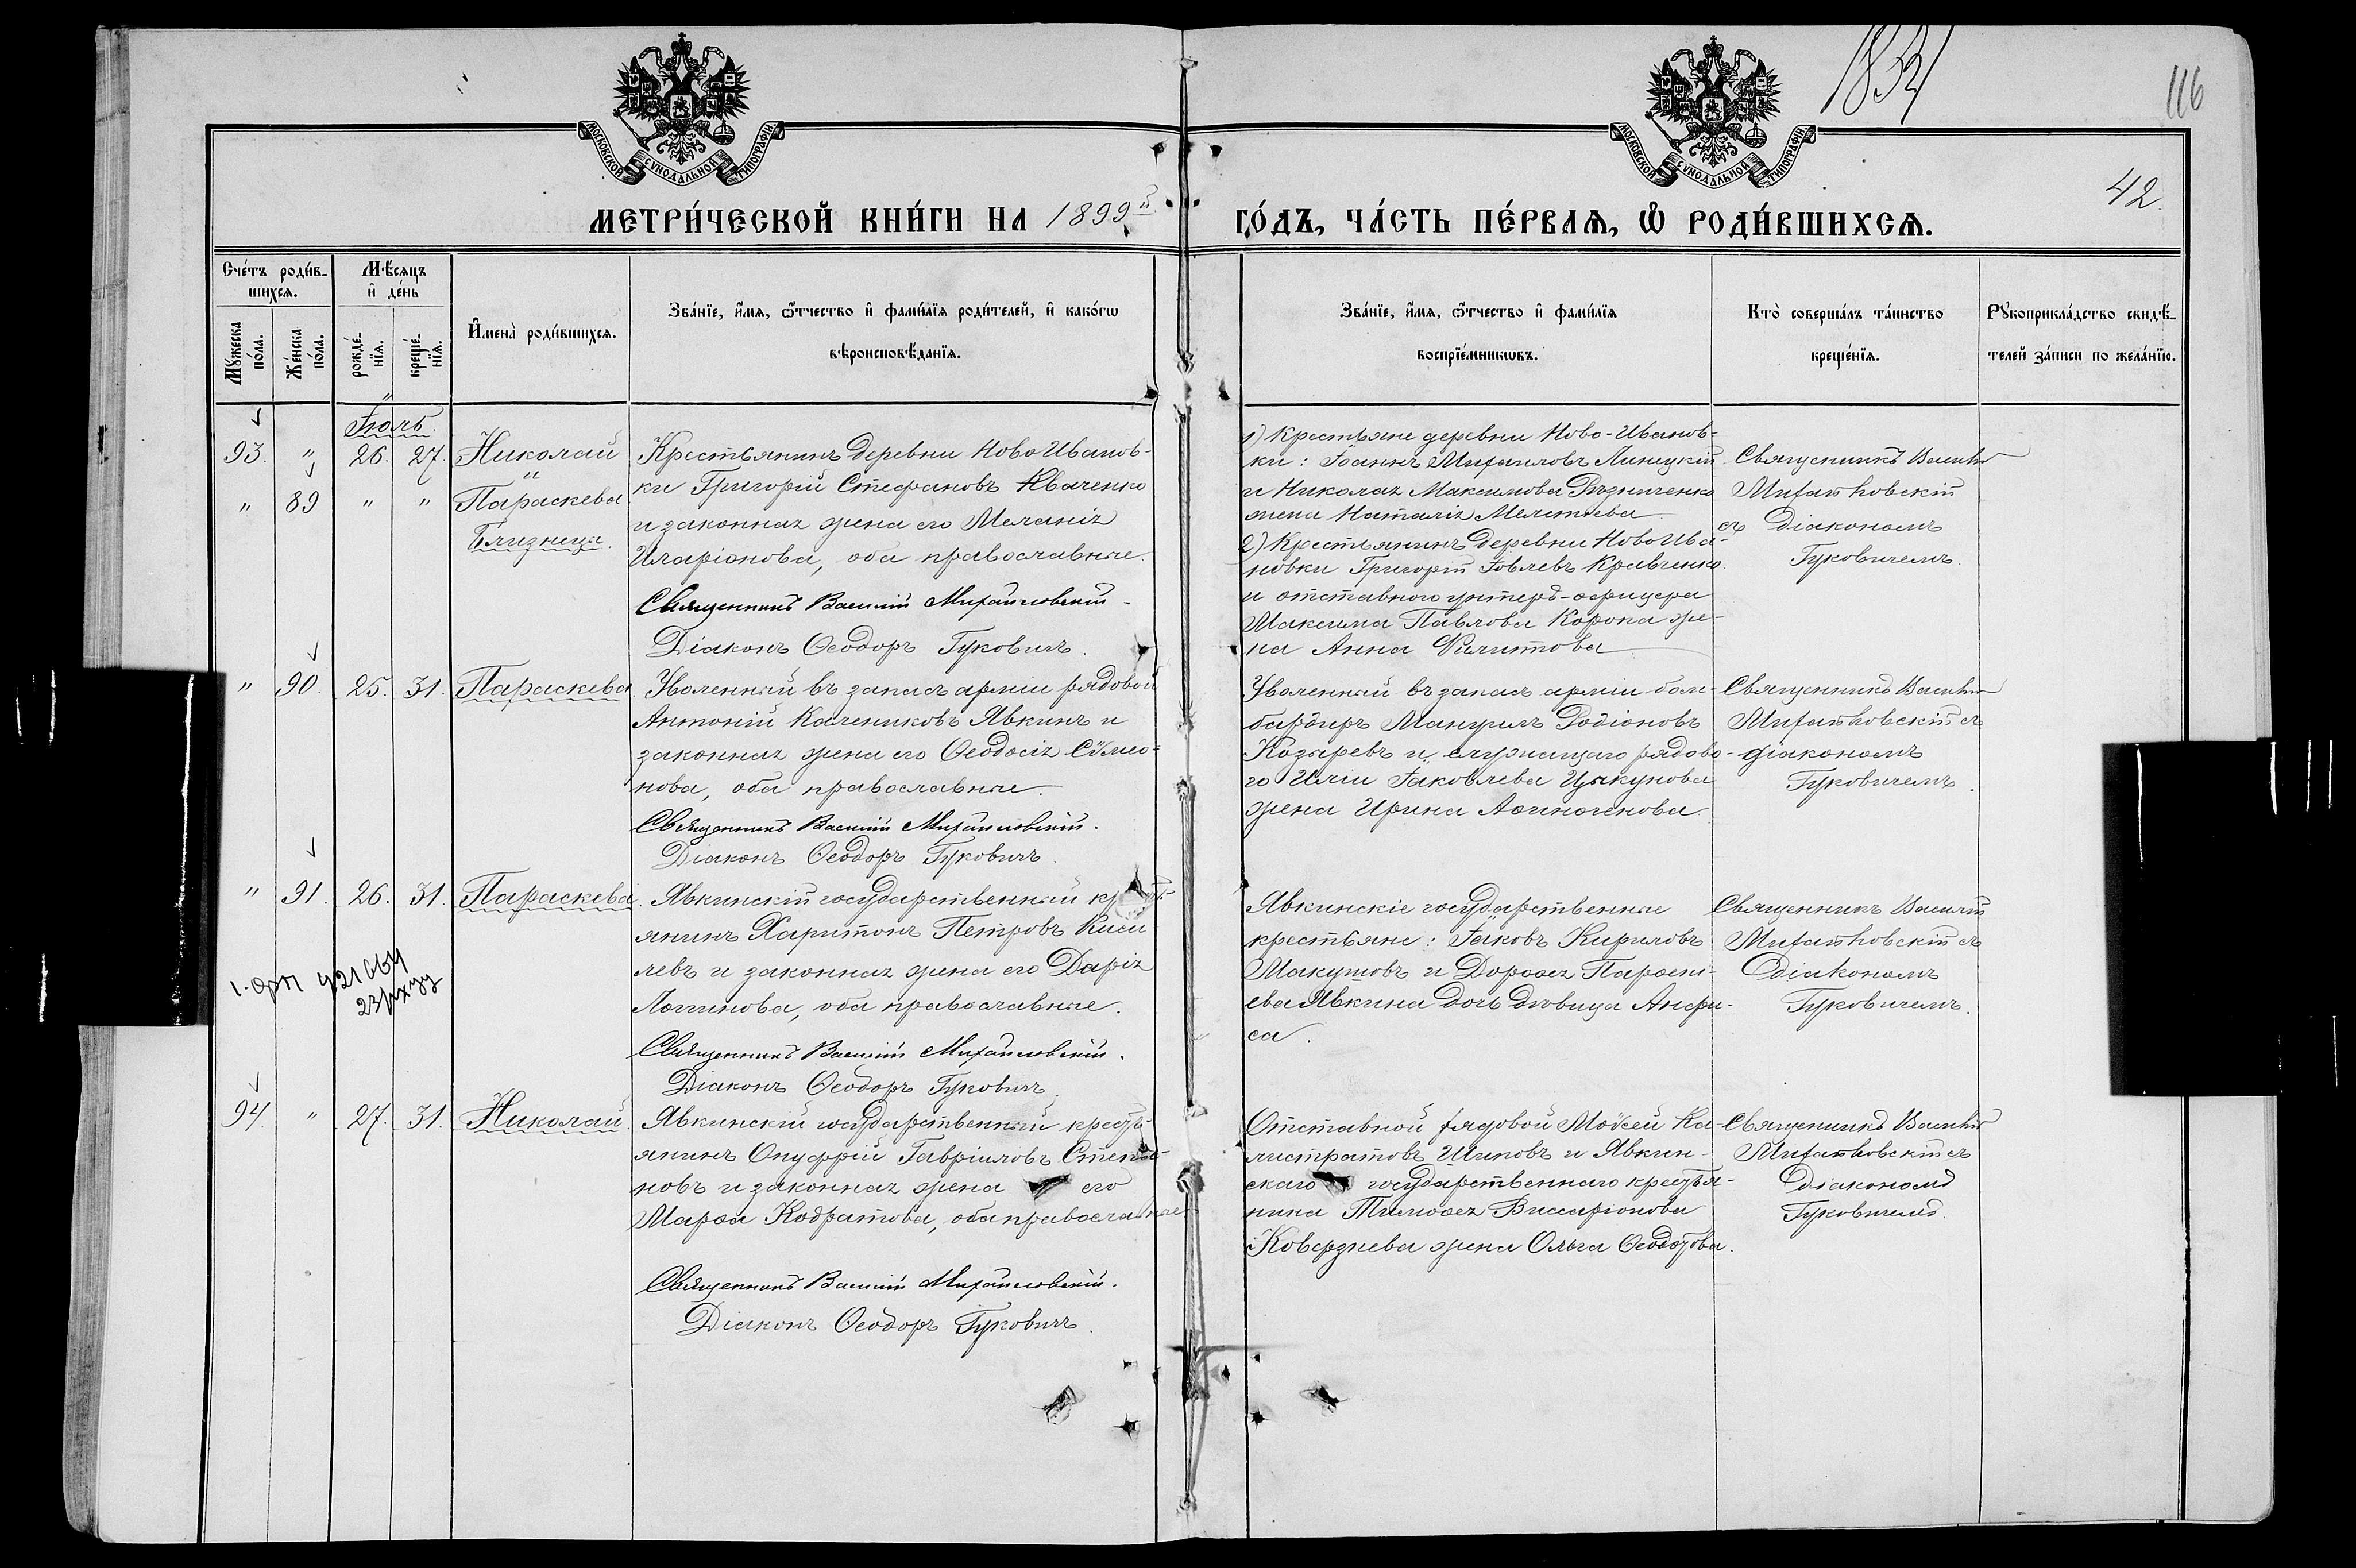 1834
116
42
МОСКОВСКОЙ СУНОДАЛЬНОЙ ТИПОГРАФІИ
МОСКОВСКОЙ СУНОДАЛЬНОЙ ТИПОГРАФІИ
МЕТРИ́ЧЕСКОЙ КНИ́ГИ НА 1899й ГО́ДЪ, ЧА́СТЬ ПЕ́РВАѦ, Ѡ҆ РОДИ́ВШИХСѦ.
Сче́тъ роди́в-
шихсѧ.
Мꙋ́жеска по́ла.
Же́нска по́ла.
Мѣ́сѧцъ и҆ де́нь
рожде́-нїѧ.
креще́-нїѧ.
И҆мена̀ роди́вшихсѧ.
Зва́нїе, и҆́мѧ, ѻ҆́тчество и҆ фами́лїѧ роди́телей, и҆ како́гѡ
вѣроисповѣ́данїѧ.
Зва́нїе, и҆́мѧ, ѻ҆́тчество и҆ фами́лїѧ
воспрїе́мникѡвъ.
Кто̀ соверша́лъ та́инство
креще́нїѧ.
Рꙋкоприкла́дство свидѣ́-
телей за́писи по жела́нїю.
Іюль.
93. " 26. 27. Николай
" 89 " " Параскева
Близнецы.
Крестьянинъ деревни Ново Иванов-
ки Григорій Стефановъ Кваченко
и законная жена его Меланія
Иларіонова, оба православные.
Священникъ Василій Михайловскій
Діаконъ Ѳеодоръ Гуковичъ.
1) Крестьяне деревни Ново-Иванов-
ки: Іоаннъ Михаиловъ Линецкій
и Николая Максимова Рѣдниченко
жена Наталія Мелетіева
2) Крестьянинъ деревни Ново Ива-
новки Григорій Іовлевъ Кравченко
и отставного унтеръ-офицера
Максима Павлова Корона же-
на Анна Филиппова
Священникъ Василій
Михайловскій
съ діакономъ
Гуковичемъ.
" 90. 25. 31. Параскева
Уволенный въ запасъ арміи рядовой
Антоній Калениковъ Явкинъ и
законная жена его Ѳеодосія Сѵмео-
нова, оба православные.
Священникъ Василій Михайловскій.
Діаконъ Ѳеодоръ Гуковичъ.
Уволенный въ запасъ арміи бом-
бардиръ Мануилъ Родіоновъ
Козыревъ и служащаго рядово-
го Иліи Іаковлева Цыкунова
жена Ирина Аѳиногенова
Священникъ Василій
Михайловскій съ
діакономъ
Гуковичемъ.
" 91. 26. 31. Параскева.
Явкинскій государственный крестьянинъ Харитонъ Петровъ Кисе
левъ и законная жена его Дарія
Логинова, оба православные.
Священникъ Василій Михайловскій.
Діаконъ Ѳеодоръ Гуковичъ.
Явкинскіе государственные
крестьяне: Іаковъ Кириловъ
Макушовъ и Дороѳея Парѳені-
ева Явкина дочь дѣвица Анфи-
са.
Священникъ Василій
Михайловскій съ
діакономъ
Гуковичемъ.
94. " 27. 31. Николай.
Явкинскій государственный кресть-
янинъ Онуфрій Гавріиловъ Степа-
новъ и законная жена его
Марѳа Кодратова, оба православные
Священникъ Василій Михайловскій.
Діаконъ Ѳеодоръ Гуковичъ.
Отставной рядовой Моѵсей Ка-
листратовъ Шиповъ и Явкин-
скаго государственнаго крестья-
нина Тимоѳея Виссаріонова
Коверзнева жена Ольга Ѳеодотова.
Священникъ Василій
Михайловскій съ
діакономъ
Гуковичемъ.